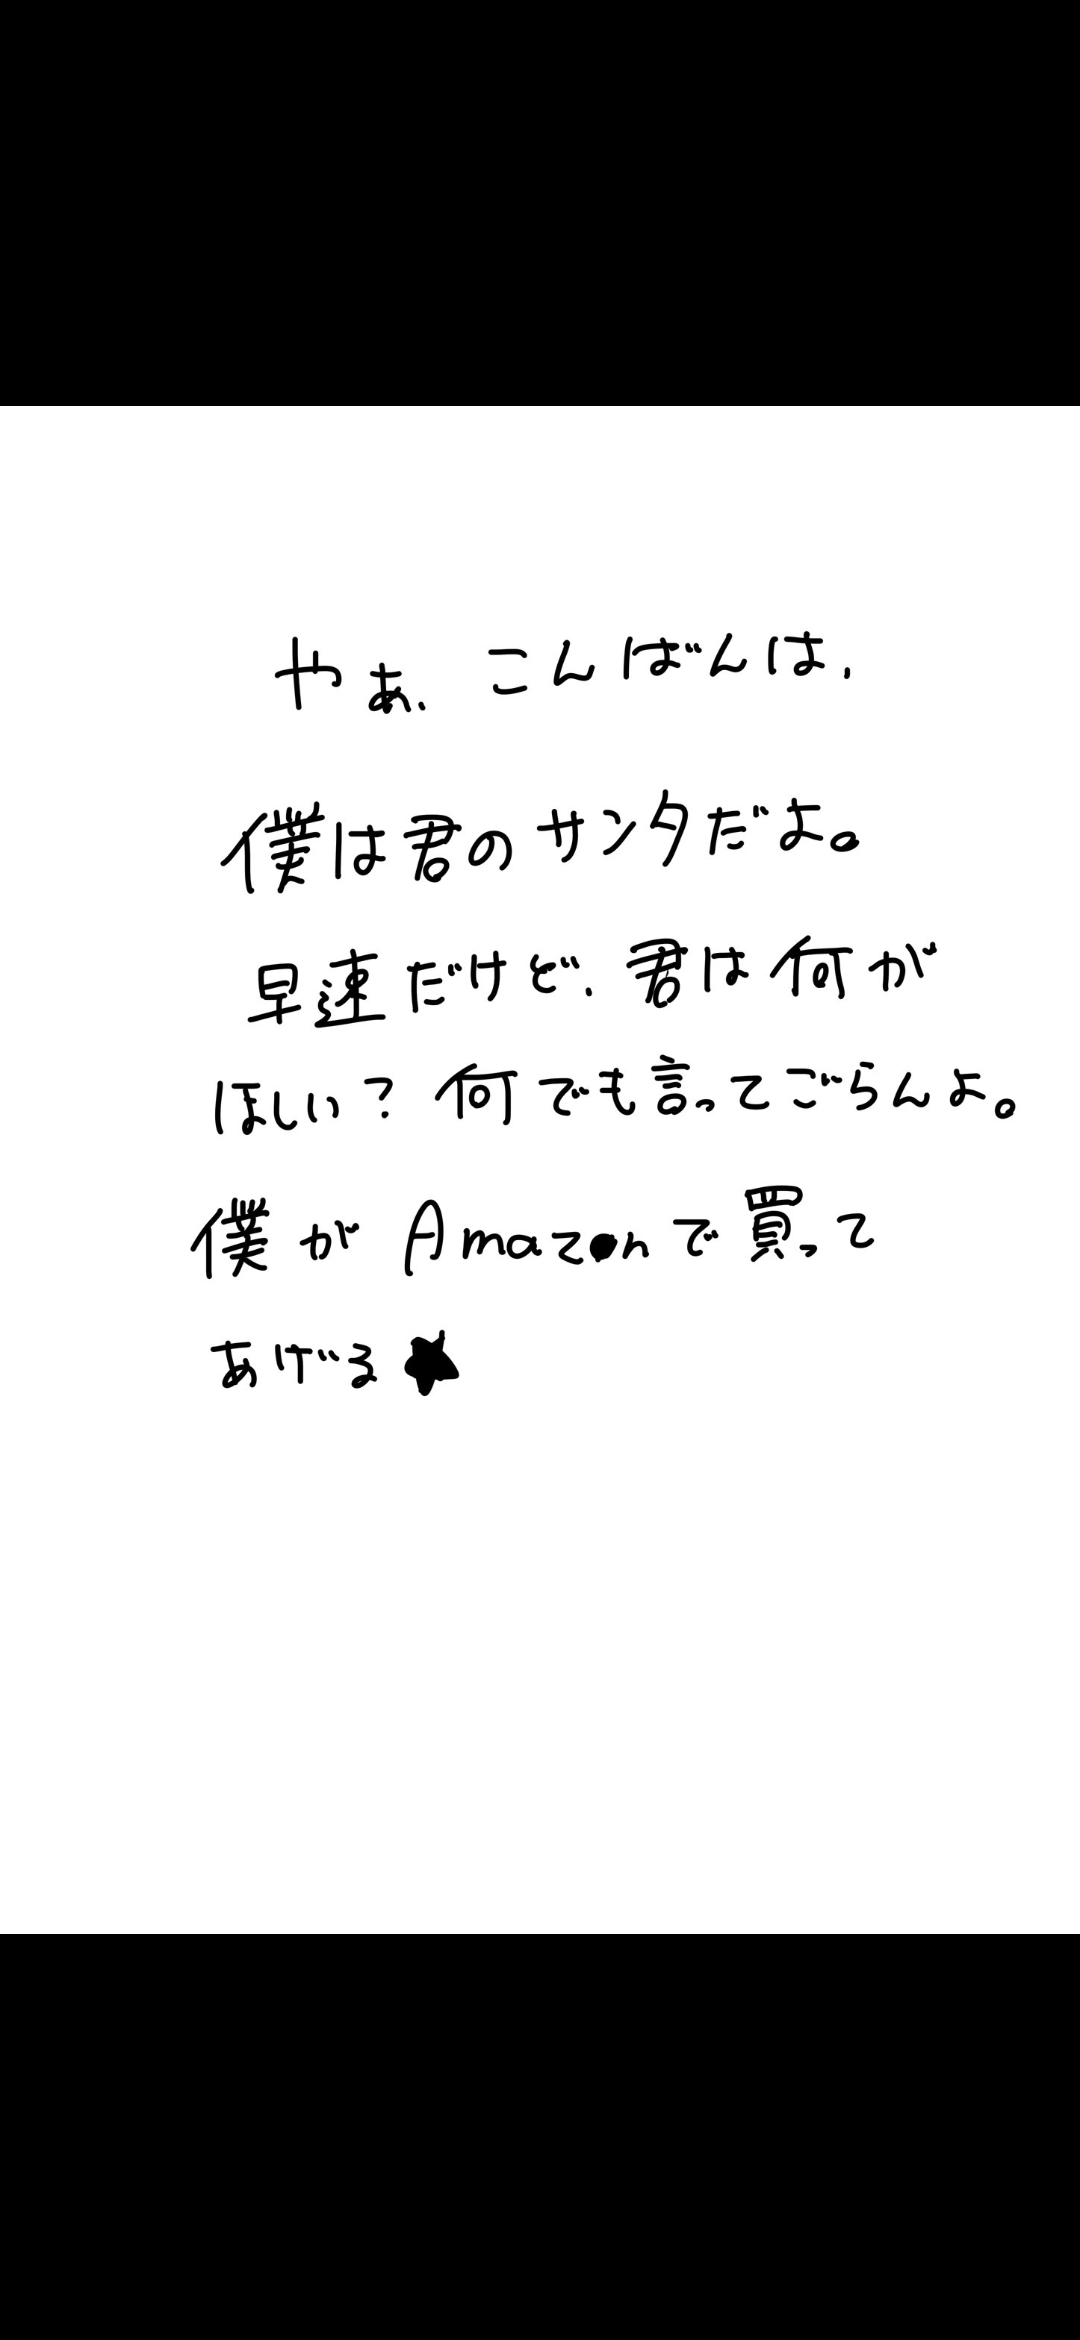 やぁ、こんばんは、
僕は君のサンタだよ。
早速だけど、君は何が
ほしい？何でも言ってごらんよ。
僕がAmazonで買って
あげる★